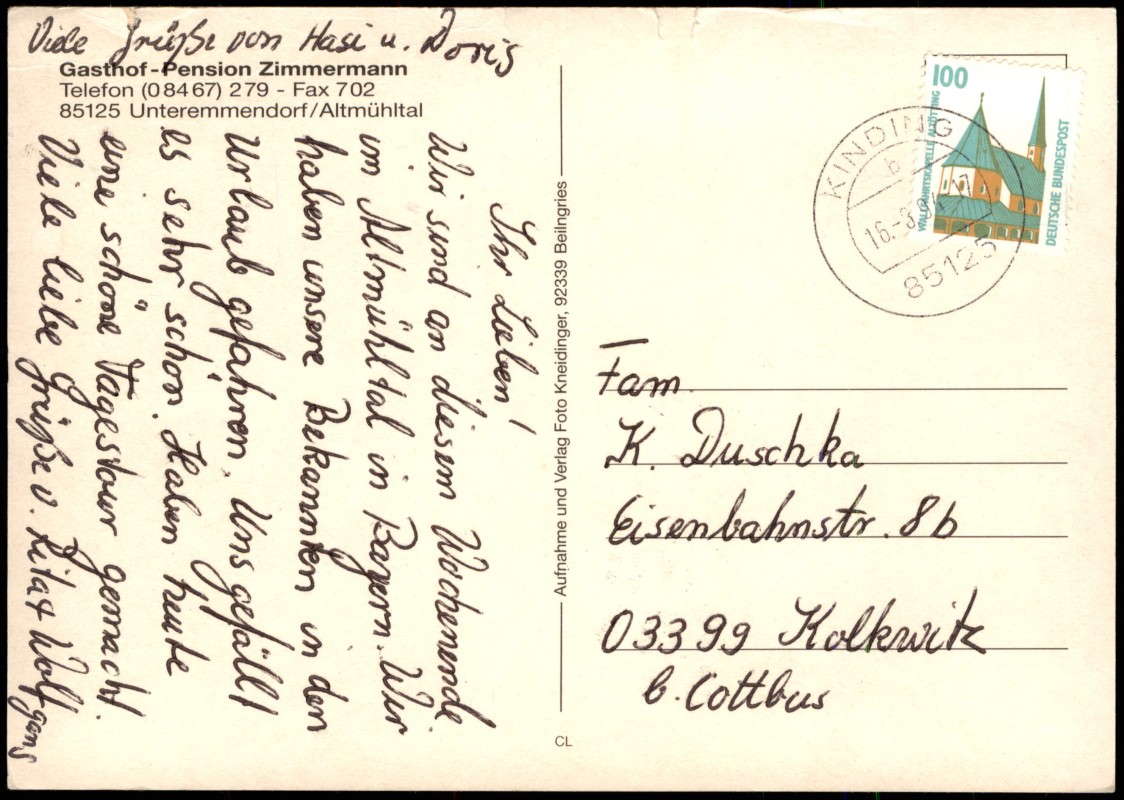 Viele Grüße von Hasi u. Doris
Gasthof-Pension Zimmermann
Telefon (0 84 67) 279 - Fax 702
85125 Unteremmendorf/Altmühltal
Ihr Lieben!
Wir sind an diesem Wochenende
im Altmühltal in Bayern. Wir
haben unsere Bekannten in den
Urlaub gefahren. Uns gefällt
es sehr schön. Haben heute
eine schöne Tagestour gemacht.
Viele liebe Grüße v. Rita + Wolfgang
Aufnahme und Verlag Foto Kneidinger, 92339 Beilngries
CL
100
WALLFAHRTSKAPELLE ALTÖTTING
DEUTSCHE BUNDESPOST
KINDING
b
16.-8.
85125
Fam.
K. Duschka
Eisenbahnstr. 8b
03399 Kolkwitz
b. Cottbus